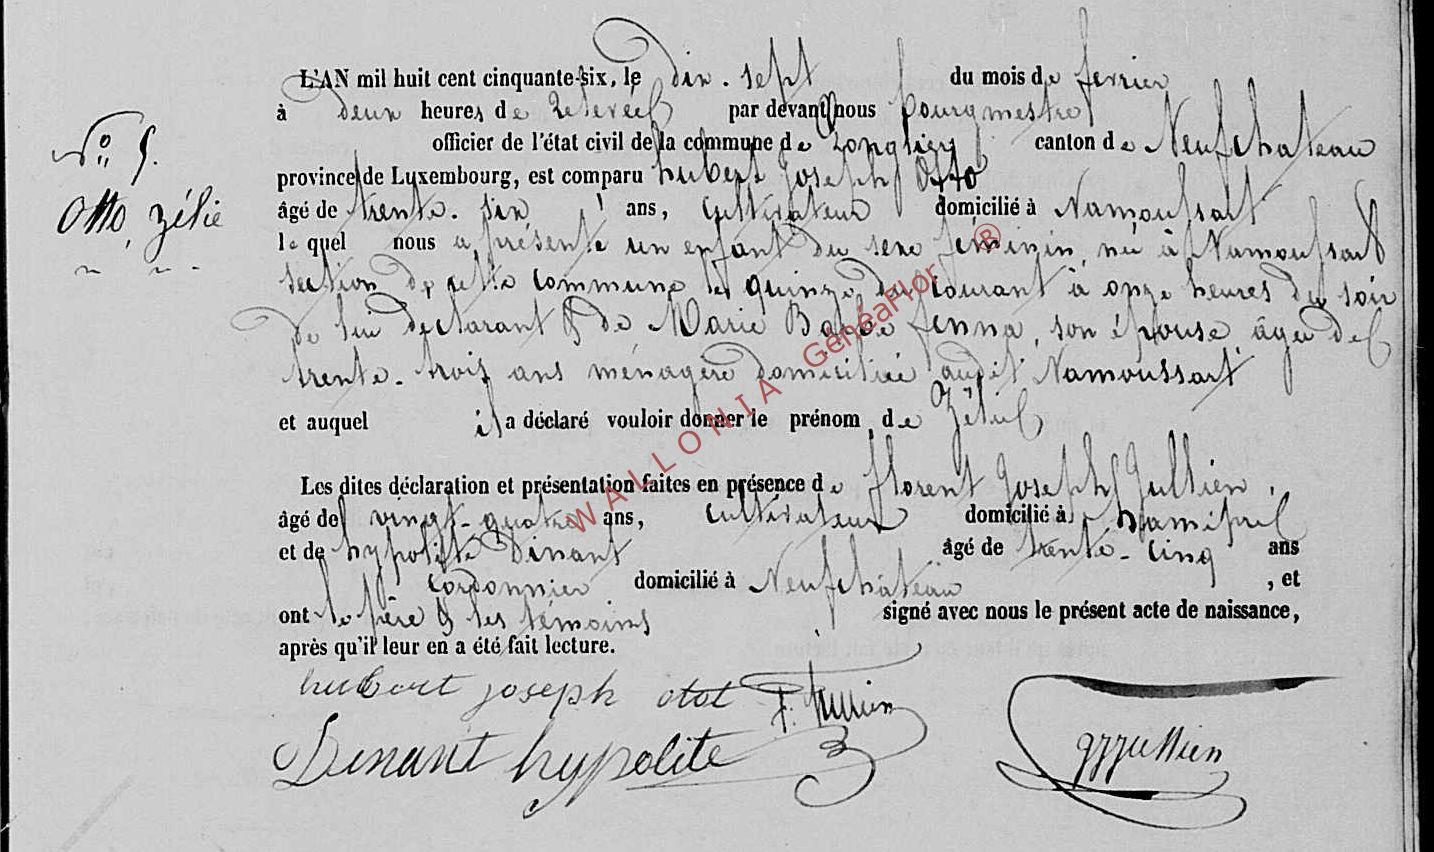 N° 5.
Otto, Zélie
L'AN mil huit cent cinquante-six, le dix-sept du mois de février
à deux heures de relevée par devant nous bourgmestre
officier de l'état civil de la commune de Longlier canton de Neufchateau
province de Luxembourg, est comparu hubert Joseph Otto
âgé de trente-six ans, cultivateur domicilié à Namoussart
le quel nous a présenté un enfant du sexe féminin, née à Namoussart
section de cette commune le quinze du courant à onze heures du soir
de lui déclarant & de Marie Barbe Jenna, son épouse, âgée de
trente-trois ans ménagère domiciliée audit Namoussart
et auquel il a déclaré vouloir donner le prénom de Zélie
Les dites déclaration et présentation faites en présence de florent Joseph Jullien,
âgé de vingt-quatre ans, cultivateur domicilié à hamipré
et de hypolite Dinant âgé de trente-cinq ans
cordonnier domicilié à Neufchâteau , et
ont le père & les témoins signé avec nous le présent acte de naissance,
après qu'il leur en a été fait lecture.
hubert joseph otot F. Jullien
Dinant hypolite
WALLONIA GénéaFlor ®